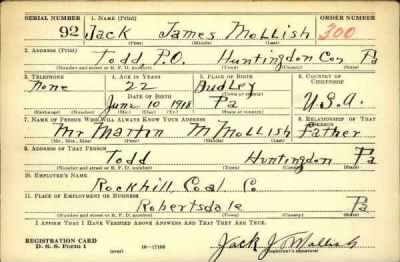 SERIAL NUMBER 1. NAME (Print) ORDER NUMBER
92 Jack James Mollish 300
(First) (Middle) (Last)
2. ADDRESS (Print)
Todd P.O. Huntingdon Coy Pa
(Number and street or R. F. D. number) (Town) (County) (State)
3. TELEPHONE 4. AGE IN YEARS 5. PLACE OF BIRTH 6. COUNTRY OF CITIZENSHIP
None 22 Dudley
DATE OF BIRTH (Town or county)
June 10 1918 Pa U.S.A.
(Exchange) (Number) (Mo.) (Day) (Yr.) (State or country)
7. NAME OF PERSON WHO WILL ALWAYS KNOW YOUR ADDRESS 8. RELATIONSHIP OF THAT PERSON
Mr Martin M Mollish Father
(Mr., Mrs., Miss) (First) (Middle) (Last)
9. ADDRESS OF THAT PERSON
Todd Huntingdon Pa
(Number and street or R. F. D. number) (Town) (County) (State)
10. EMPLOYER'S NAME
Rockhill Coal Co
11. PLACE OF EMPLOYMENT OR BUSINESS
Robertsdale Pa
(Number and street or R. F. D. number) (Town) (County) (State)
I AFFIRM THAT I HAVE VERIFIED ABOVE ANSWERS AND THAT THEY ARE TRUE.
REGISTRATION CARD
D. S. S. Form 1 (over) 16—17105 Jack J Mollish
(Registrant's signature)